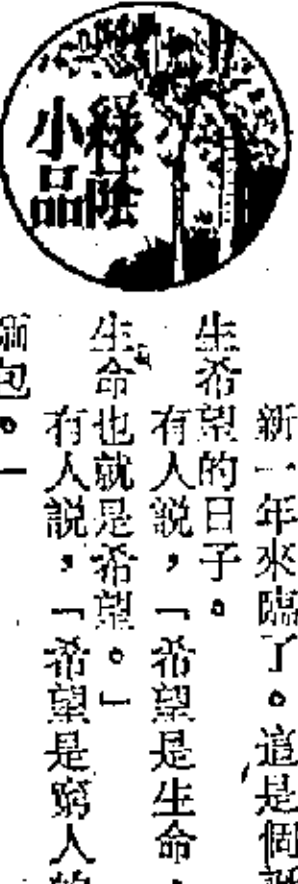 綠蔭
小品
新一年來臨了。這是個
生希望的日子。
有人説，「希望是生命，
生命也就是希望。」
有人説，「希望是窮人
包。」